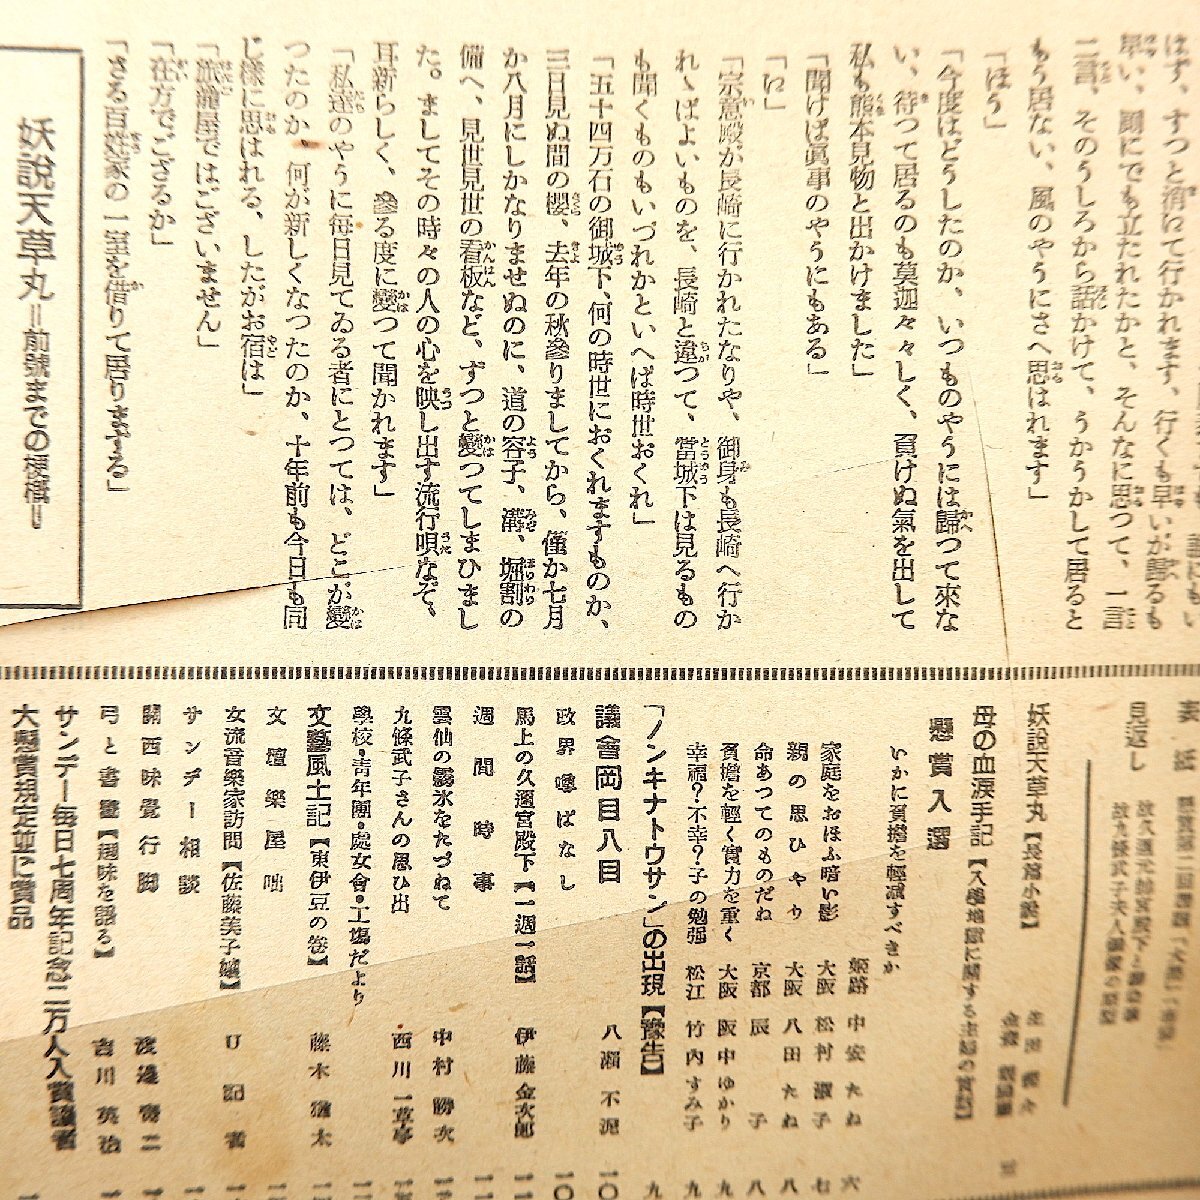 はず、すつと消えて行かれます、行くも早いが歸るも
早い、門にでも立たれたかと、そんなに思つて、一言
二言、そのうしろから話かけて、うかうかして居ると
もう居ない、風のやうにさへ思はれます」
「ほう」
「今度はどうしたのか、いつものやうには歸つて來な
い、待つて居るのも莫迦々々しく、負けぬ氣を出して
私も熊本見物と出かけました」
「聞けば眞事のやうにもある」
「い」
「宗意殿が長崎に行かれたなりや、御身も長崎へ行か
れゝばよいものを、長崎と違つて、當城下は見るもの
も聞くものもいづれかといへば時世おくれ」
「五十四万石の御城下、何の時世におくれますものか、
三日見ぬ間の櫻、去年の秋參りましてから、僅か七月
か八月にしかなりませぬのに、道の容子、溝、堀割の
備へ、見世見世の看板など、ずつと變つてしまひまし
た。ましてその時々の人の心を映し出す流行唄なぞ、
耳新らしく、參る度に變つて聞かれます」
「私達のやうに毎日見てゐる者にとつては、どこが變
つたのか、何が新しくなつたのか、十年前も今日も同
じ樣に思はれる、したがお宿は」
「旅籠屋ではございません」
「在方でござるか」
「さる百姓家の一室を借りて居りまする」
妖說天草丸＝前號までの梗概＝
表紙
見返し
妖說天草丸【長篇小說】
母の血淚手記【入學地獄に關する主婦の實記】
懸賞入選
いかに負擔を輕減すべきか
家庭をおほふ暗い影 姬路 中安たね 六
親の思ひやり 大阪 松村淑子 七
命あつてのものだね 大阪 八田たね 八
負擔を輕く實力を重く 京都 辰子 八
幸福？不幸？子の勉强 大阪 阪中ゆかり 九
松江 竹内すみ子 九
「ノンキナトウサン」の出現【豫告】 九
議會岡目八目 八瀨不泥 一〇
政界噂ばなし 一〇
馬上の久邇宮殿下【一週一話】 伊藤金次郎
週間時事
雲仙の霧氷をたづねて 中村勝次
九條武子さんの思ひ出 西川一草亭
學校・靑年團・處女會・工場だより
文藝風土記【東伊豆の卷】 藤木猶太
文壇樂屋咄
女流音樂家訪問【佐藤美子孃】 U記者
サンデー相談
關西味覺行脚
弓と書鬱【趣味を語る】 吉川英治
サンデー毎日七周年記念二万人入賞讀者
大懸賞規定並に賞品